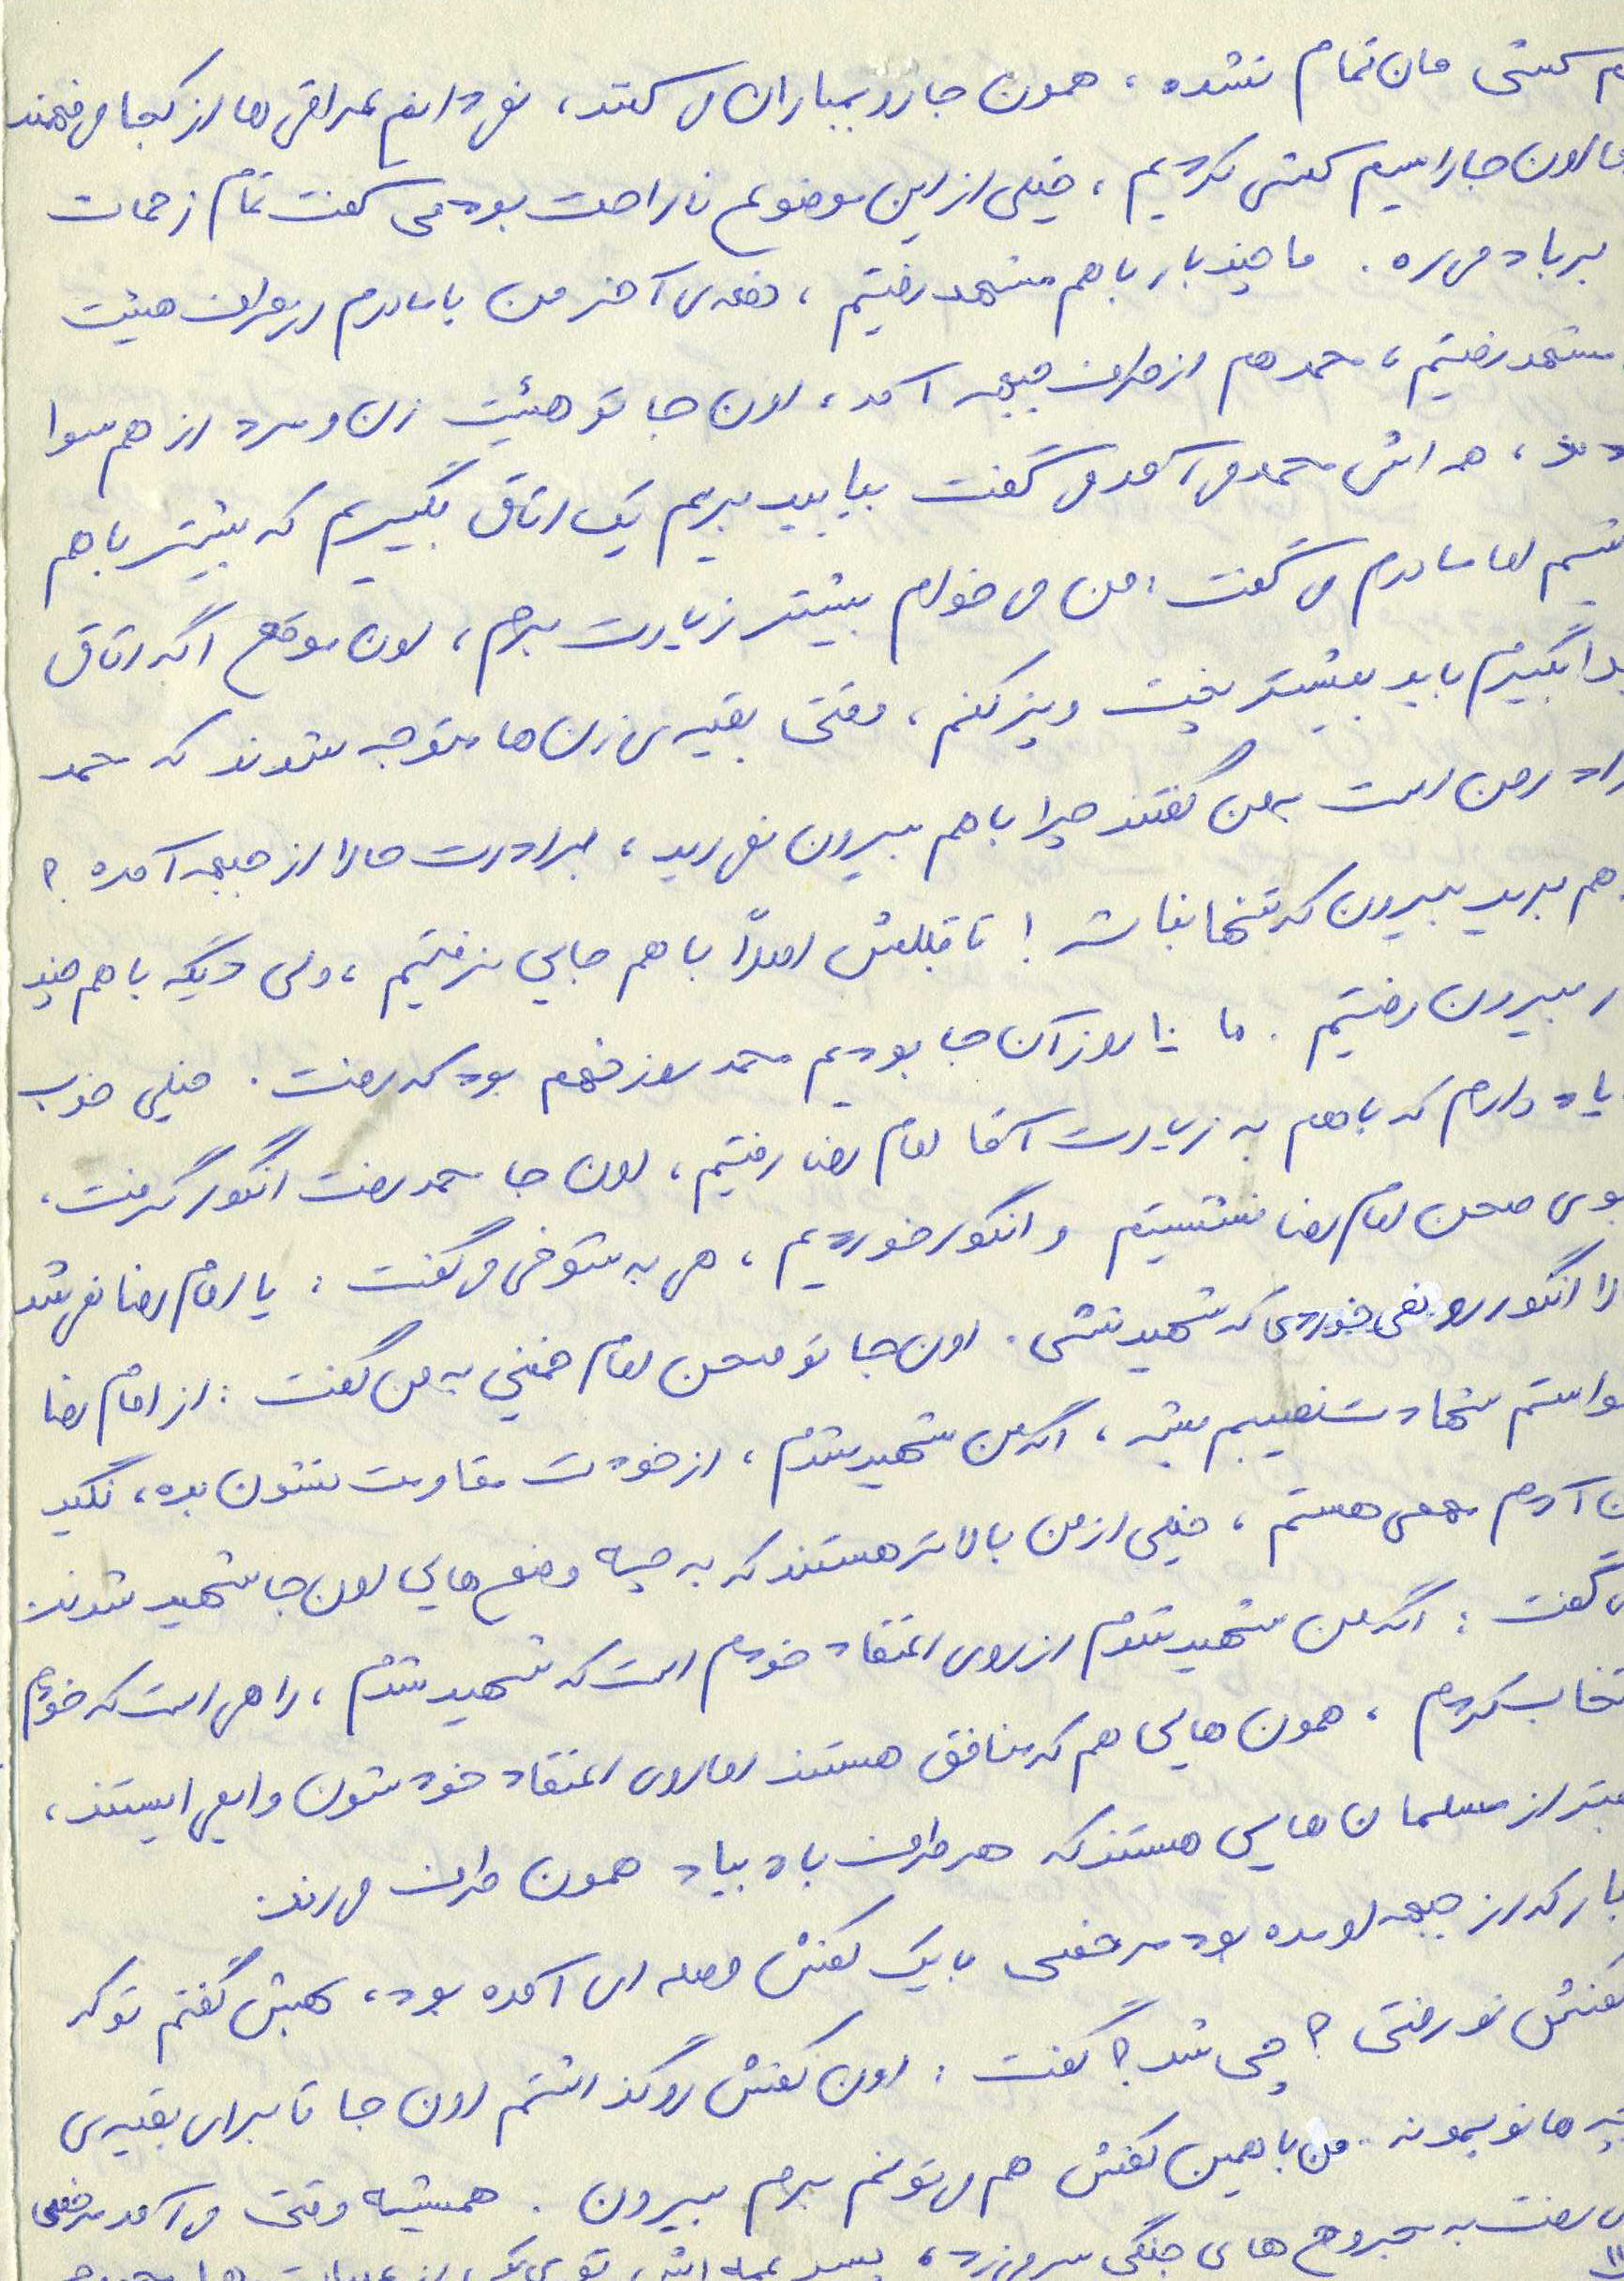 سیم کشی مان تمام نشده، همون جا رو بمباران می کنند، نمی دانم عراقی ها از کجا می فهمند
ما اون جا را سیم کشی کردیم، خیلی از این موضوع ناراحت بود می گفت تمام زحمات
برباد می ره. ما چند بار با هم مشهد رفتیم، دفعه ی آخر من با مادرم از طرف هیئت
مشهد رفتیم، محمد هم از طرف جبهه آمد، اون جا تو هیئت زن و مرد از هم سوا
بودند، همه اش محمد می آمد می گفت بیایید بریم یک اتاق بگیریم که بیشتر با هم
باشیم اما مادرم می گفت: من می خوام بیشتر زیارت برم، اون موقع اگه اتاق
جدا بگیرم باید بیشتر پخت و پز کنم، وقتی بقیه ی زن ها متوجه شدند که محمد
برادر من است به من گفتند چرا با هم بیرون نمی رید، برادرت حالا از جبهه آمده؟
با هم برید بیرون که تنها نباشد! تا قبلش اصلاً با هم جایی نرفتیم، ولی دیگه با هم چند
بار بیرون رفتیم. ما ۱۰ روز آن جا بودیم محمد روز نهم بود که رفت. خیلی خوب
یاد دارم که با هم به زیارت آقا امام رضا رفتیم، اون جا محمد رفت انگور گرفت،
توی صحن امام رضا نشستیم و انگور خوردیم، هی به شوخی می گفت: یا امام رضا نمی شد
انگور رو نمی خوردی که شهید نشی. اون جا تو صحن امام خمینی به من گفت: از امام رضا
خواستم شهادت نصیبم بشه، اگه من شهید شدم، از خودت مقاومت نشون بده، نگید
من آدم مهمی هستم، خیلی از من بالاتر هستند که به چه وضع هایی اون جا شهید شدند
می گفت: اگه من شهید شدم از روی اعتقاد خودم است که شهید شدم، راهی است که خودم
انتخاب کردم، همون هایی هم که منافق هستند اما روی اعتقاد خودشون وا می ایستند،
بهتر از مسلمان هایی هستند که هر طرف باد بیاد همون طرف می رند.
بار که از جبهه اومده بود مرخصی با یک کفش وصله ای آمده بود، بهش گفتم تو که
کفش نو رفتی؟ چی شد؟ گفت: اون کفش رو گذاشتم اون جا تا برای بقیه ی
بچه ها نو بمونه. من با همین کفش هم می تونم برم بیرون. همیشه وقتی می آمد مرخصی
می رفت به مجروح های جنگی سر می زد،